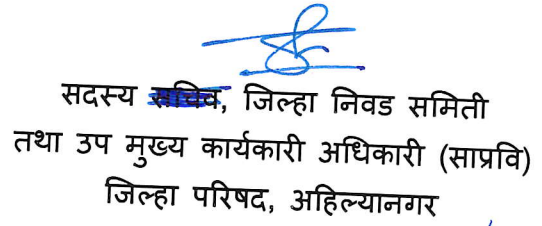 सदस्य सचिव, जिल्हा निवड समिती
तथा उप मुख्य कार्यकारी अधिकारी (साप्रवि)
जिल्हा परिषद, अहिल्यानगर